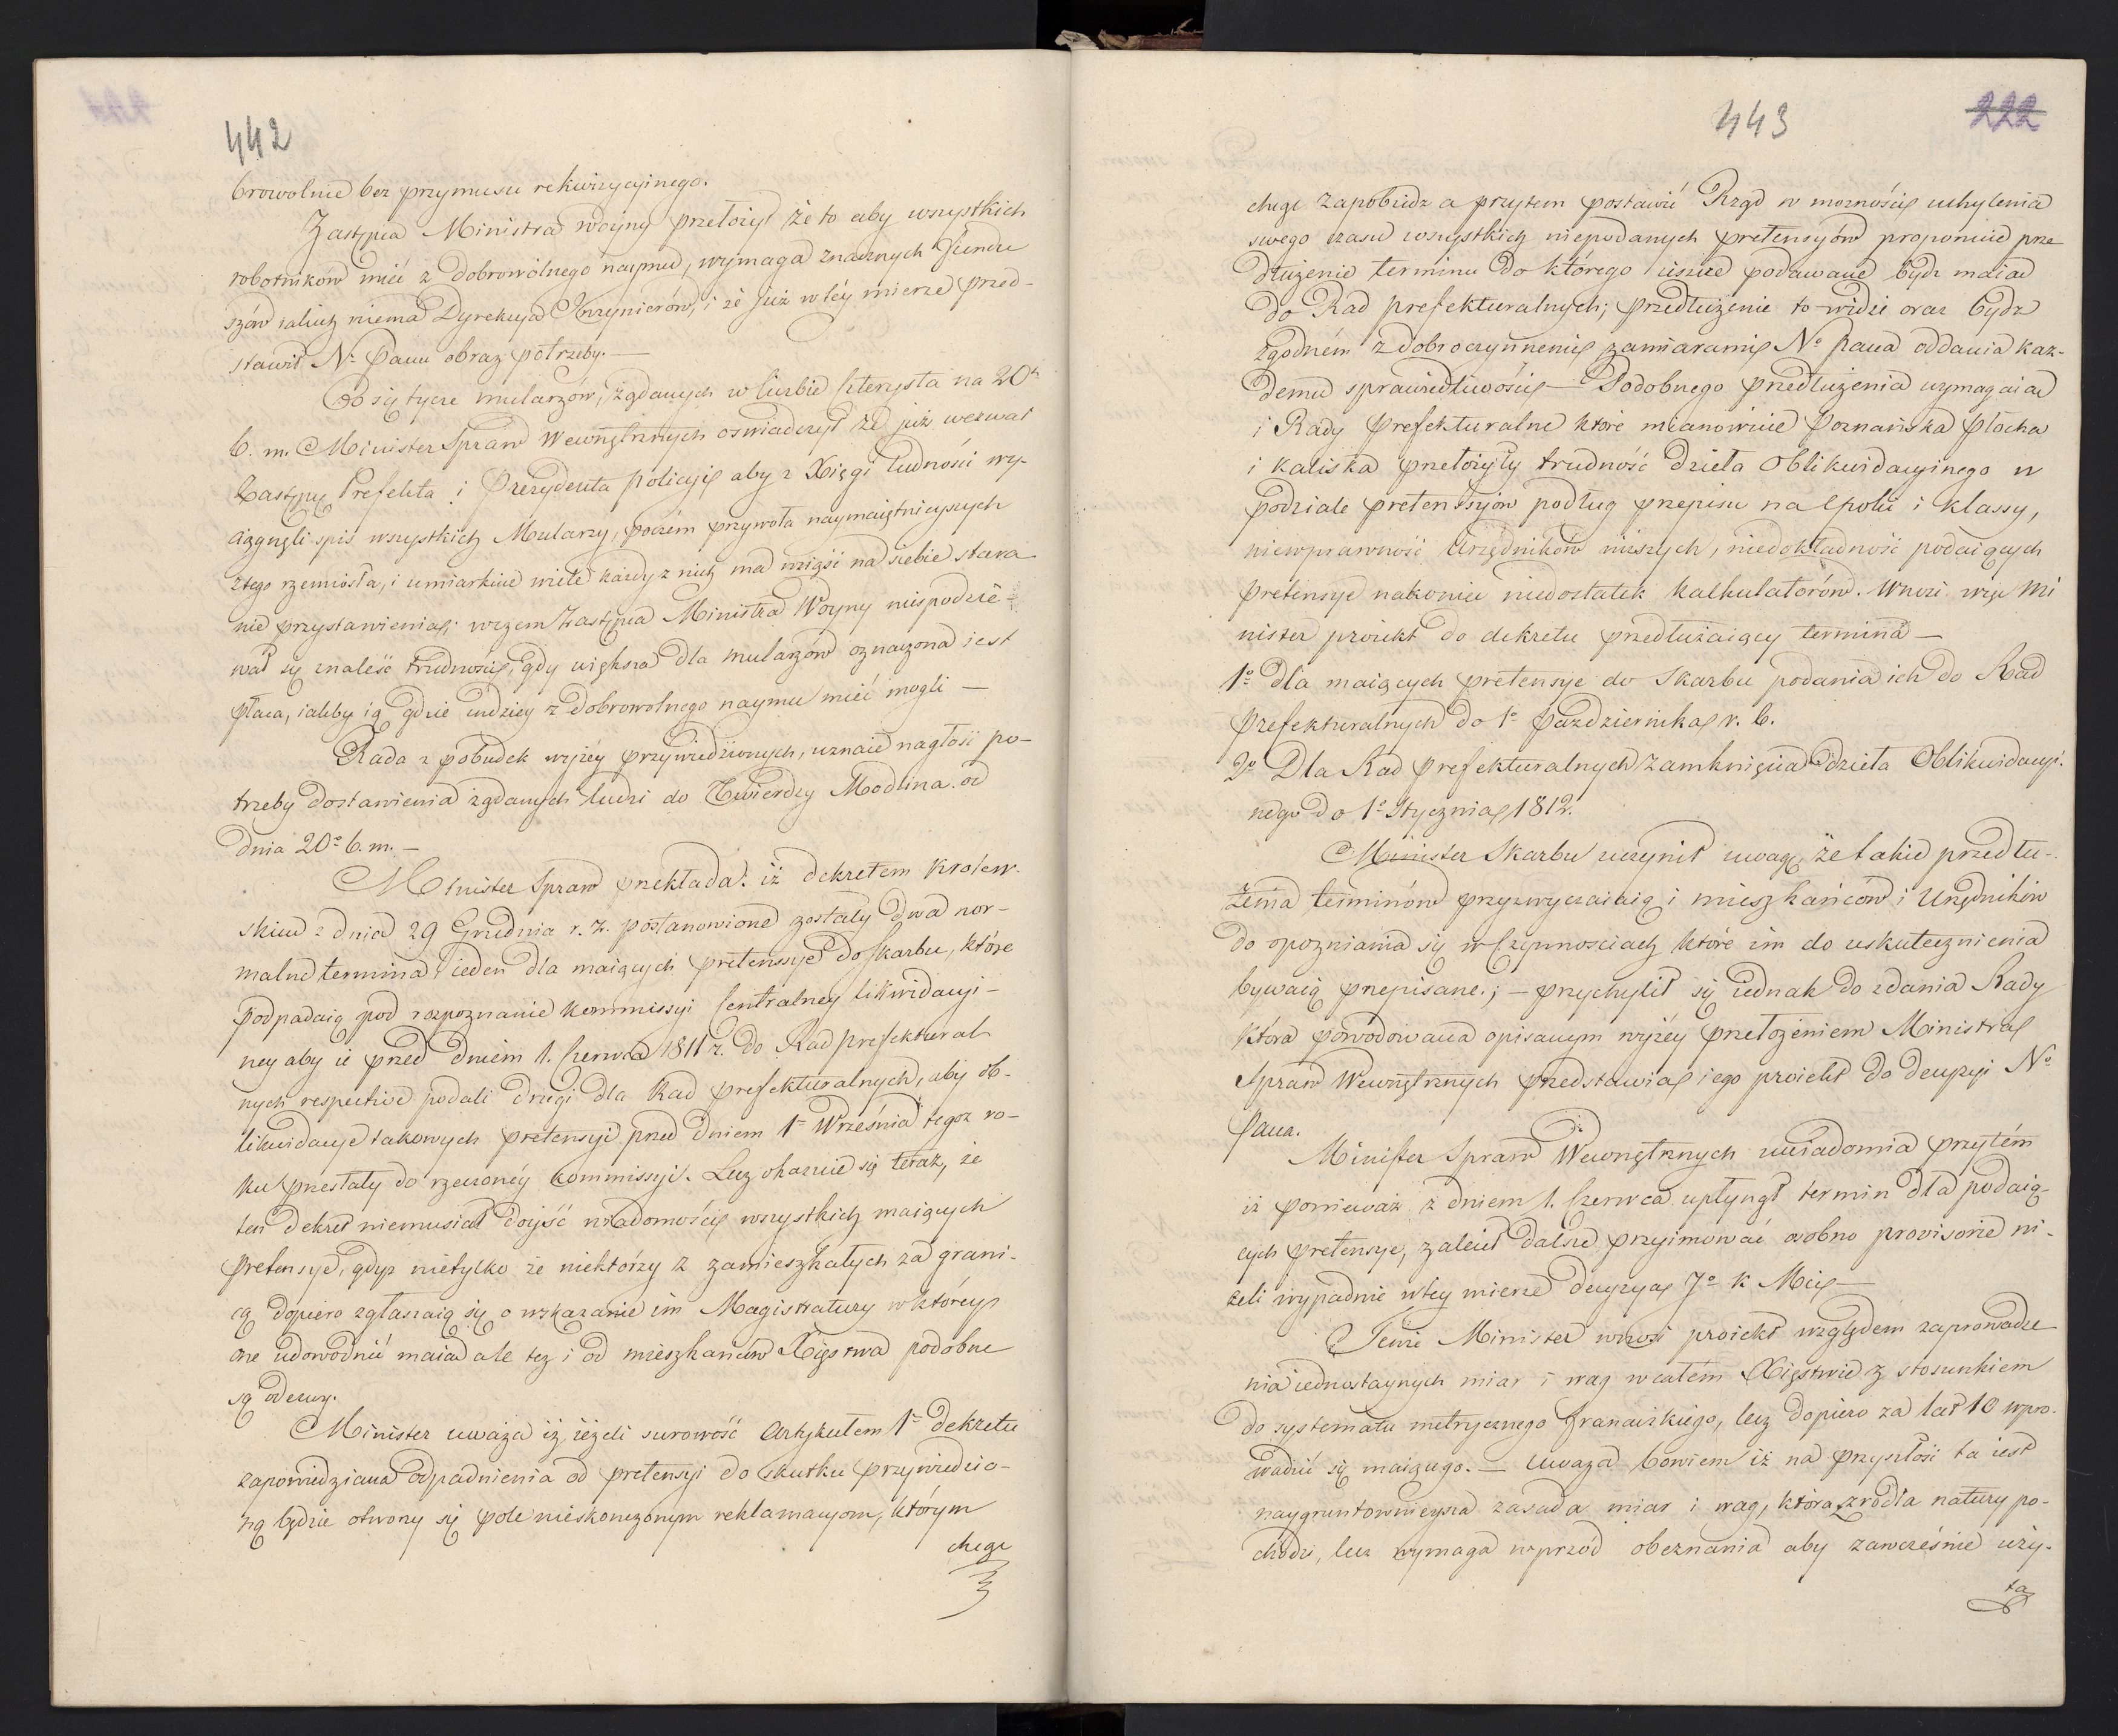 442
browolnie bez przymusu rekwizycyinego.
Zastępca Ministra woyny przełożył że to aby wszystkich
robotników mieć z dobrowolnego naymu, wymaga znacznych fundu
szów iakich niema Dyrekcya Inżynierów, i że już w téy mierze przed-
stawił N. Panu obraz potrzeby. —
Co się tycze mularzów, żądanych w liczbie czterysta na 20o
b. m. Minister Spraw Wewnętrznych oświadczył że już wezwał
Zastępcę Prefekta i Prezydenta policyi aby z Xięgi ludności wy-
ciągnęli spis wszystkich Mularzy, poczém przywoła naymaiętnieyszych
z tego rzemiosła, i umiarkuie wiele każdy z nich ma wziąść na siebie stara
nie przystawienia; wczem Zastępca Ministra Woyny niespodzie-
wał się znaleść trudności, gdy większa dla mularzów oznaczona iest
płaca, iakby ią gdzie indziey z dobrowolnego naymu mieć mogli —
Rada z pobudek wyżéy przywiedzionych, uznaie nagłość po-
trzeby dostawienia żądanych ludzi do Twierdzy Modlina od
dnia 20o b. m. —
Minister Spraw przekłada: iż dekretem Krolew-
skim z dnia 29 Grudnia r. z. postanowione zostały dwa nor-
malne termina ieden dla maiących pretenssye do skarbu, które
podpadaią pod rozpoznanie Kommissyi Centralney likwidacyi-
ney aby ie przed dniem 1. Czerwca 1811 r. do Rad prefektural
nych respective podali drugi dla Rad prefekturalnych, aby ob-
likwidacye takowych pretensyi przed dniem 1o Września tegoż ro-
ku przesłały do rzeczonéy Kommissyi. Lecz okazuie się teraz, że
ten dekret niemusiał doyść wiadomości wszystkich maiących
pretensye, gdyż nietylko że niektórzy z zamieszkałych za grani-
cą dopiero zgłaszaią się o wskazanie im Magistratury w któréy
one udowodnić maią ale też i od mieszkańców Xięstwa podobne
są odezwy.
Minister uważa iż ieżeli surowość Artykułem 1o dekretu
zapowiedziana odpadnienia od pretensyi do skutku przywiedzio-
ną będzie otworzy się pole nieskończonym reklamacyom, którym
chcąc
443
222
chcąc zapobiedz a przytem postawić Rząd w możności uchylenia
swego czasu wszystkich niepodanych pretensyów proponuie prze
dłużenie terminu do którego ieszcze podawane bydź maią
do Rad prefekturalnych; przedłużenie to widzi oraz bydź
zgodném z dobroczynnemi zamiarami No Pana oddania każ-
demu sprawiedliwości — Podobnego przedłużenia wymagaią
i Rady Prefekturalne które mianowicie Poznańska Płocka
i Kaliska przełożyły trudność dzieła Oblikwidacyinego w
podziale pretensyów podług przepisu na Epoki i Klassy,
niewprawność Urzędników niższych, niedokładność podaiących
pretensye nakoniec niedostatek Kalkulatorów. Wnosi więc Mi
nister proiekt do dekretu przedłużaiący termina —
1o dla maiących pretensye do Skarbu podania ich do Rad
Prefekturalnych do 1o Października r. b.
2o Dla Rad Prefekturalnych zamknięcia dzieła Oblikwidacyi-
nego do 1o Stycznia 1812.
Minister Skarbu uczynił uwagę, że takie przedłu-
żenia terminów przyzwyczaiaią i mieszkańców i Urzędników
do opozniania się w czynnosciach które im do uskutecznienia
bywaią przepisane; — przychylił się iednak do zdania Rady
która powodowana opisanym wyżéy przełożeniem Ministra
Spraw Wewnętrznych przedstawia iego proiekt do decyzyi No
Pana.
Minister Spraw Wewnętrznych uwiadomia przytém
iż ponieważ z dniem 1. Czerwca upłynął termin dla podaią-
cych pretensye, zalecił dalsze przyimować osobno provisorie ni-
żeli wypadnie w tey mierze decyzya Jo K Mci —
Tenże Minister wnosi proiekt względem zaprowadze
nia iednostaynych miar i wag w całém Xięstwie z stosunkiem
do systematu metrycznego francuzkiego, lecz dopiero za lat 10 wpro-
wadzić się maiącego. — Uważa bowiem iż na przyszłość ta iest
naygruntownieysza zasada miar i wag, która z źródła natury po-
chodzi, lecz wymaga wprzód obeznania aby zawcześnie uży-
ta